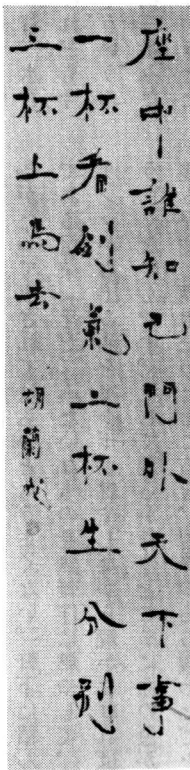 座中誰知己門外天下事
一杯看劍氣二杯生分別
三杯上馬去
胡蘭成